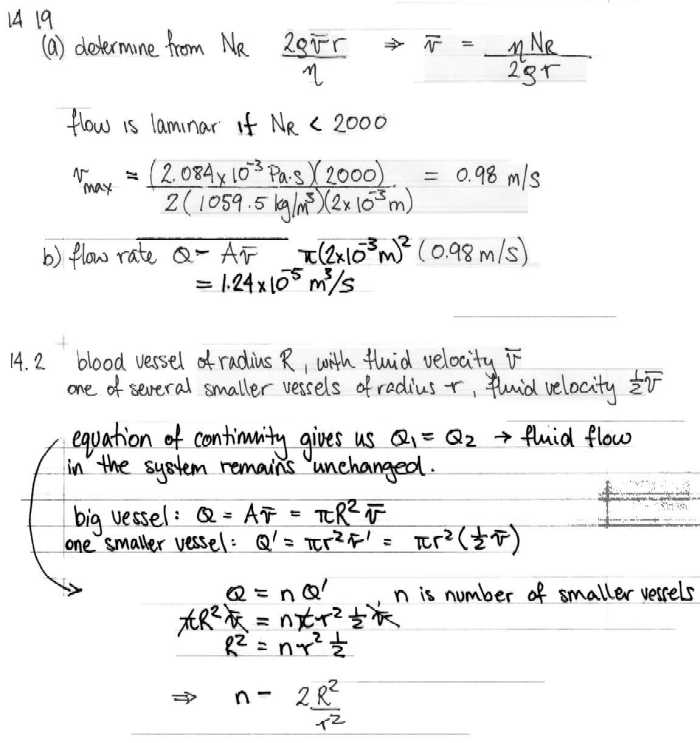 14 19
(a) determine from NR 2ϱv̄r/η ⇒ v̄ = ηNR/2ϱr
flow is laminar if NR < 2000
vmax = (2.084×10⁻³ Pa·s)(2000)/2(1059.5 kg/m³)(2×10⁻³m) = 0.98 m/s
b) flow rate Q - Av̄ π(2×10⁻³m)² (0.98 m/s)
= 1.24×10⁻⁵ m³/s
14.2 blood vessel of radius R, with fluid velocity v̄
one of several smaller vessels of radius r, fluid velocity ½v̄
equation of continuity gives us Q1 = Q2 → fluid flow
in the system remains unchanged.
big vessel: Q = Av̄ = πR² v̄
one smaller vessel: Q' = πr² v̄' = πr² (½ v̄)
Q = nQ' , n is number of smaller vessels
πR² v̄ = nπr² ½ v̄
R² = nr² ½
⇒ n - 2R²/r²